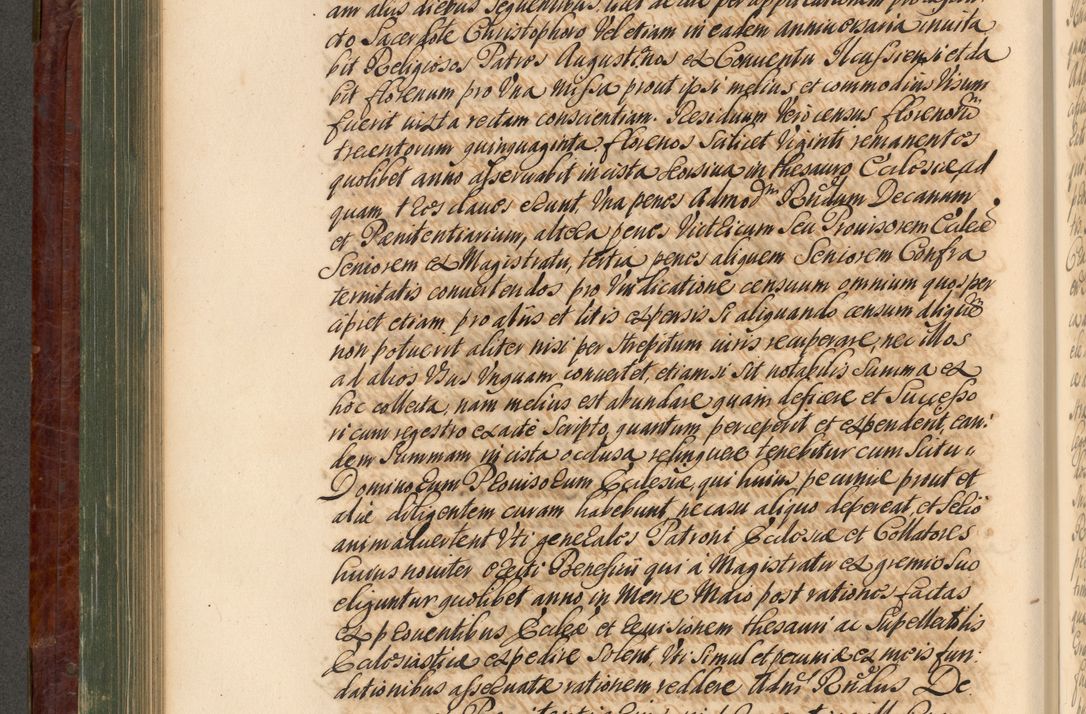 am alijs diebus sequentibus licet de die per applicationem pro defun
cto Sacerdote Christophoro Vel etiam in eadem anniversaria invita
bit Religiosos Patres Augustinos ex Conventu Ilcussiensi et da
bit florenum pro Vna Missa prout ipsi melius et commodius Visum
fuerit iuxta rectam conscientiam. Residuum Vero census florenorum
trecentorum quinquaginta florenos Scilicet Viginti remanentes
quolibet anno asservabit in cista seorsiva in thesauro Ecclesiæ ad
quam tres claves erunt, Vna penes Admodm Rndum Decanum
et Pænitentiarium, altera penes Victricum Seu Provisorem Eccleæ
Seniorem ex Magistratu, tertia penes aliquem Seniorem Confra
ternitatis convertendos pro Vindicatione censuum omnium quos per
cipiet etiam pro alijs et litis expensis Si aliquando censum aliquem
non potuerit aliter nisi per strepitum iuris recuperare, nec illos
ad alios Vsus Vnquam convertet, etiamsi sit notabilis Summa ex
hoc collecta, nam melius est abundare quam deficere et Successo
ri cum regestro exacte Scripto quantum perceperit et expendent, ean:
dem Summam in cista occlusa relinquere tenebitur cum Scitu
Dominorum Provisorum Ecclesiæ, qui huius pecuniæ prout et
aliæ diligentem curam habebunt, ne casu aliquo depereat, et serio
animadvertent Vti generales Patroni Ecclesiæ et Collatores
huius noviter erecti Beneficij qui à Magistratu ex gremio suo
eliguntur quolibet anno in Mense Maio post rationes factas
ex proventibus Eccleæ et revisionem thesauri ac Supellectilis
Ecclesiasticæ expedire Solent, Vti simul et pecuniæ ex meis fun:
dationibus asservatæ rationem reddere Adm Rndus De